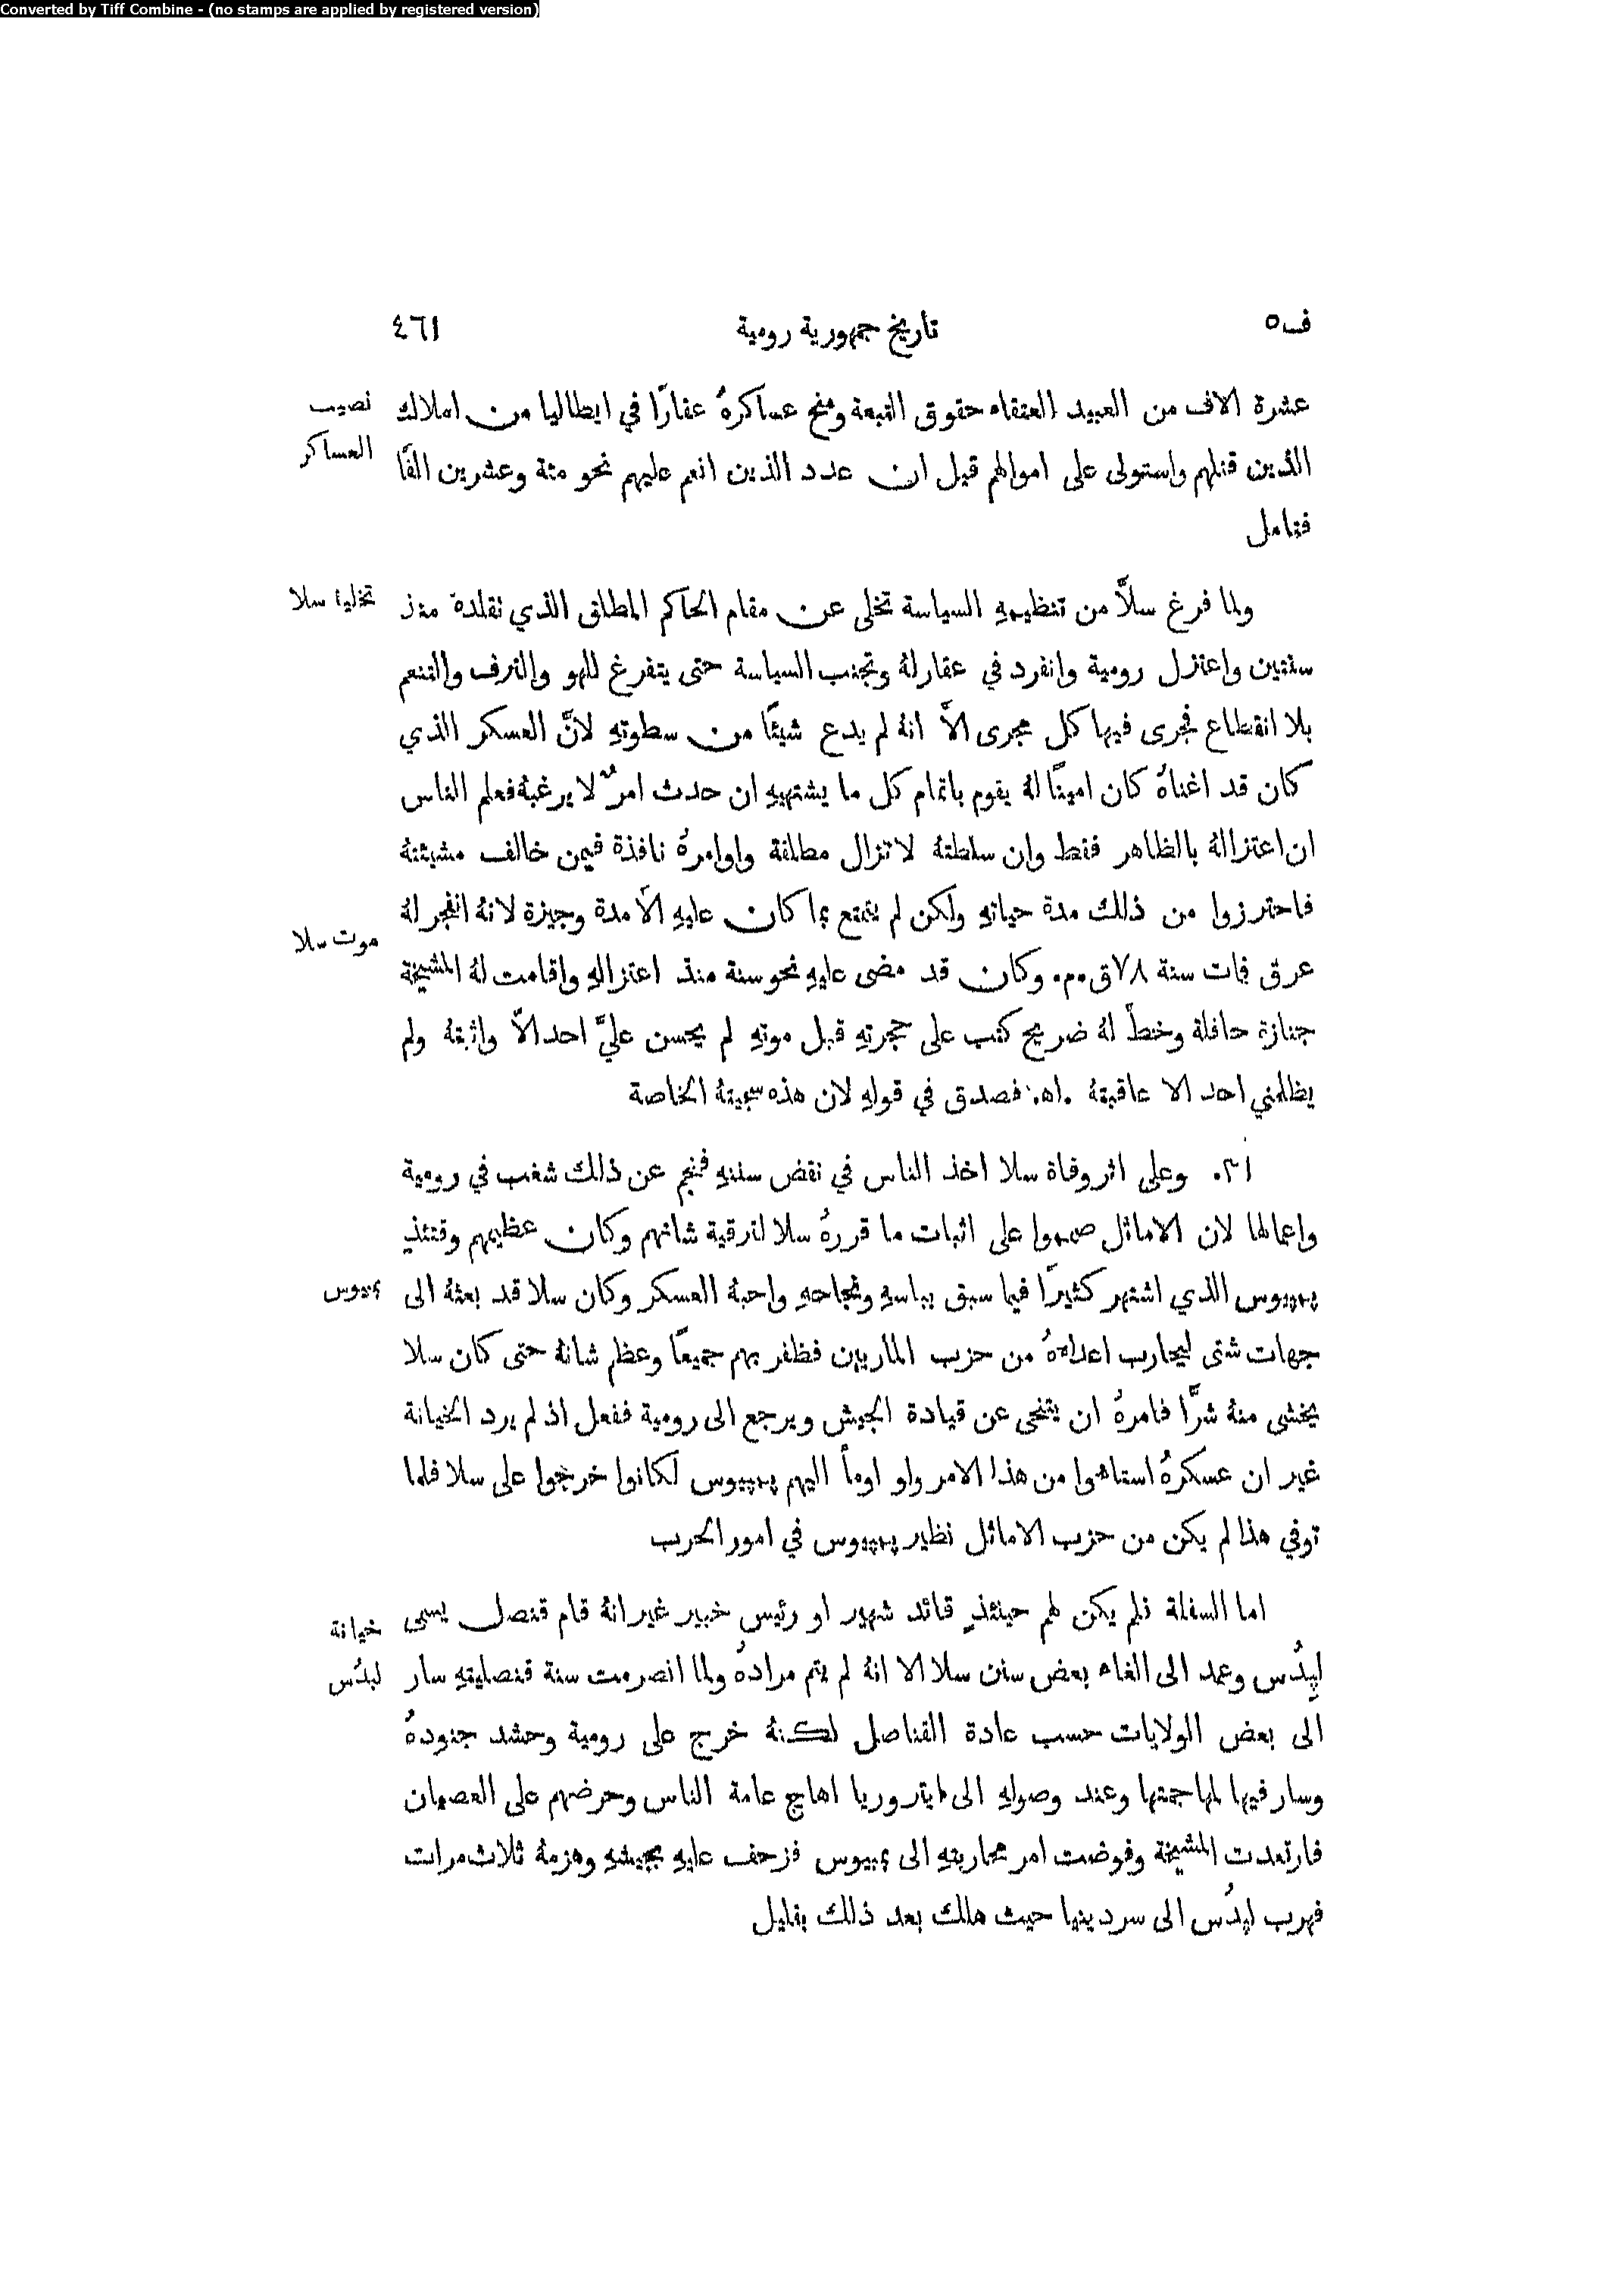 Converted by Tiff Combine - (no stamps are applied by registered version)
ف٥ تاريخ جمهورية رومية ٤٦١
عشرة الاف من العبيد العتقاء حقوق التبعة ومنح عساكرهُ عقارًا في ايطاليا من املاك
نصيب
العساكر
الذين قتلهم واستولى على اموالهم قيل ان عدد الذين انعم عليهم نحو مئة وعشرين الفًا
فتامل
ولما فرغ سلَّا من تنظيمهِ السياسة تخلى عن مقام الحاكم المطلق الذي تقلدهُ منذ
تخلية سلا
سنتين واعتزل رومية وانفرد في عقار لهُ وتجنب السياسة حتى يتفرغ للهو والترف والتنعم
بلا انقطاع فجرى فيها كل مجرى الَّا انهُ لم يدع شيئًا من سطوتهِ لانَّ العسكر الذي
كان قد اغناهُ كان امينًا لهُ يقوم باتمام كل ما يشتهيهِ ان حدث امرٌ لا يرغبهُ فعلم الناس
ان اعتزالهُ بالظاهر فقط وان سلطتهُ لا تزال مطلقة واوامرهُ نافذة فيمن خالف مشيئتهُ
فاحترزوا من ذلك مدة حياتهِ ولكن لم يتمتع بما كان عليهِ الَّا مدة وجيزة لانهُ انفجر لهُ
موت سلا
عرق فمات سنة ٧٨ ق.م. وكان قد مضى عليهِ نحو سنة منذ اعتزالهِ واقامت لهُ المشيخة
جنازة حافلة وخطَّ لهُ ضريح كتب على حجرتهِ قبل موتهِ لم يحسن عليَّ احد الَّا واثبتهُ ولم
يظلمني احد الا عاقبتهُ .اه. فصدق في قولهِ لان هذه سجيتهُ الخاصة
٢١. وعلى اثر وفاة سلا اخذ الناس في نقض سننهِ فنجم عن ذلك شغب في رومية
واعمالها لان الاماثل صمموا على اثبات ما قررهُ سلا لترقية شانهم وكان عظيمهم وقتئذٍ
پمپيوس الذي اشتهر كثيرًا فيما سبق بباسهِ ونجاحهِ واحبهُ العسكر وكان سلا قد بعثهُ الى
بمبيوس
جهات شتى ليحارب اعداءهُ من حزب الماريين فظفر بهم جميعًا وعظم شانهُ حتى كان سلا
يخشى منهُ شرًّا فامرهُ ان يتنحى عن قيادة الجيش ويرجع الى رومية ففعل اذ لم يرد الخيانة
غير ان عسكرهُ استاهوا من هذا الامر ولو اومأ اليهم پمپيوس لكانوا خرجوا على سلا فلما
توفي هذا لم يكن من حزب الاماثل نظير پمپيوس في امور الحرب
اما السفلة فلم يكن لهم حينئذٍ قائد شهير او رئيس خبير غير انهُ قام قنصل يسمى
خيانة
لپدُس وعمد الى الغاء بعض سنن سلا الا انهُ لم يتم مرادهُ ولما انصرمت سنة قنصليتهِ سار
لبدُس
الى بعض الولايات حسب عادة القناصل لكنهُ خرج على رومية وحشد جنودهُ
وسار فيها لمهاجمتها وعند وصولهِ الى ايتروريا اهاج عامة الناس وحرضهم على العصيان
فارتعدت المشيخة وفوضت امر محاربتهِ الى بمبيوس فزحف عليهِ بجيشهِ وهزمهُ ثلاث مرات
فهرب لپدُس الى سردينيا حيث هلك بعد ذلك بقليل